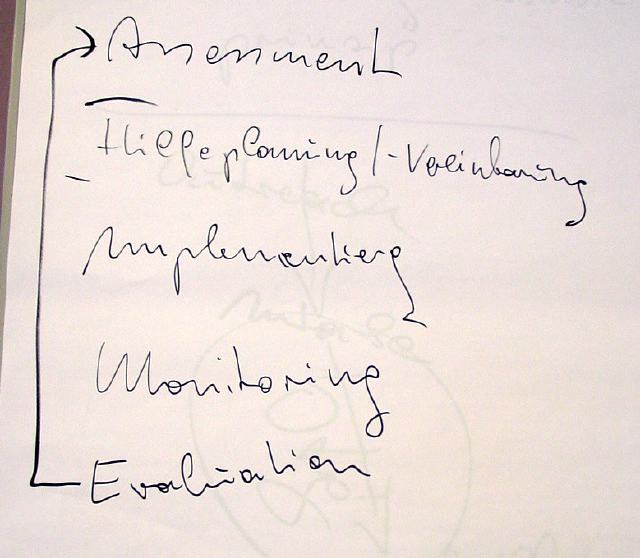 Assessment
Hilfeplanung/-Vereinbarung
Implementierg
Monitoring
Evaluation